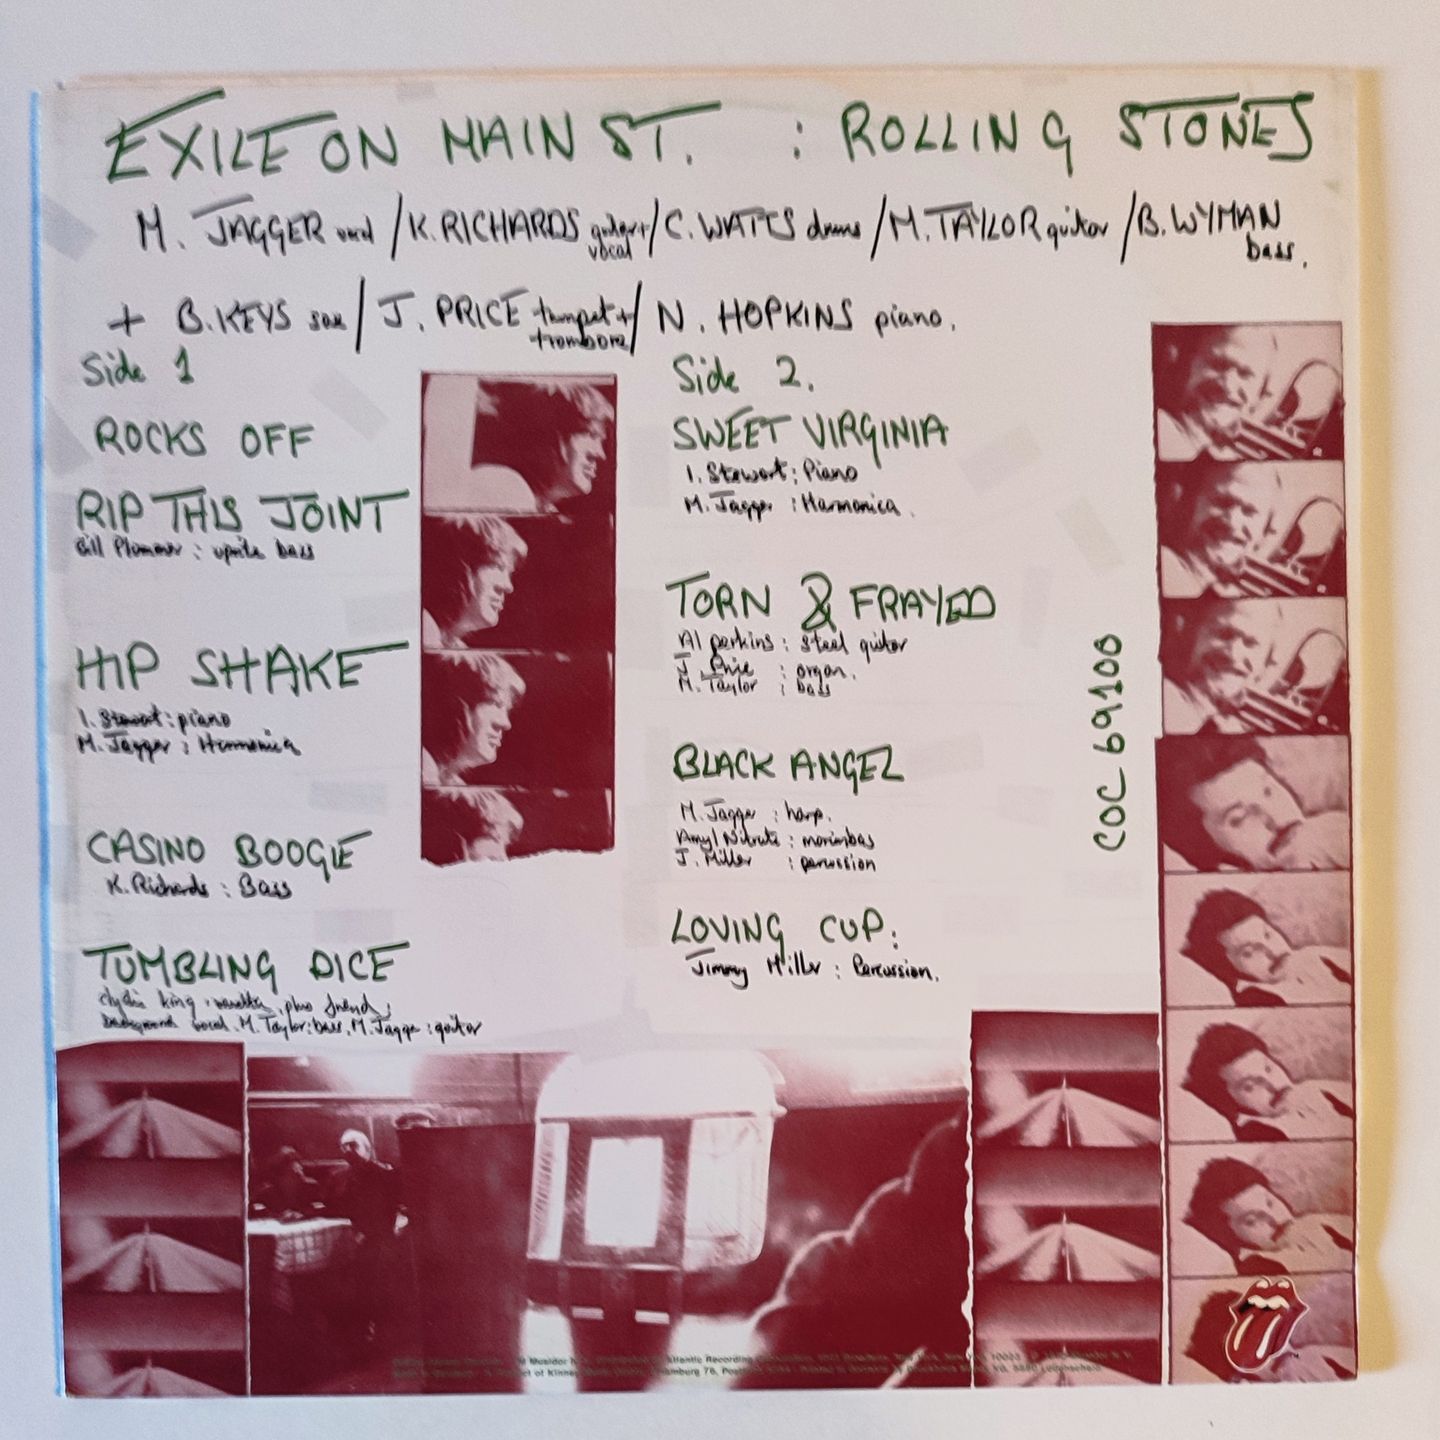 EXILE ON MAIN ST. : ROLLING STONES
M. JAGGER vocal / K. RICHARDS guitar + vocal / C. WATTS drums / M. TAYLOR guitar / B. WYMAN bass.
+ B. KEYS sax / J. PRICE trumpet + trombone / N. HOPKINS piano.
Side 1
ROCKS OFF
RIP THIS JOINT
Bill Plummer : uprite bass
HIP SHAKE
I. Stewart : piano
M. Jagger : Harmonica
CASINO BOOGIE
K. Richards : Bass
TUMBLING DICE
clydie king, vanetta, plus friend;
background vocal. M. Taylor: bass, M. Jagger : guitar
Side 2.
SWEET VIRGINIA
I. Stewart : Piano
M. Jagger : Harmonica.
TORN & FRAYED
Al perkins : steel guitar
J. Price : organ.
M. Taylor : bass
BLACK ANGEL
M. Jagger : harp.
Amyl Nitrate : marimbas
J. Miller : percussion
LOVING CUP:
Jimmy Miller : Percussion.
COC 69100